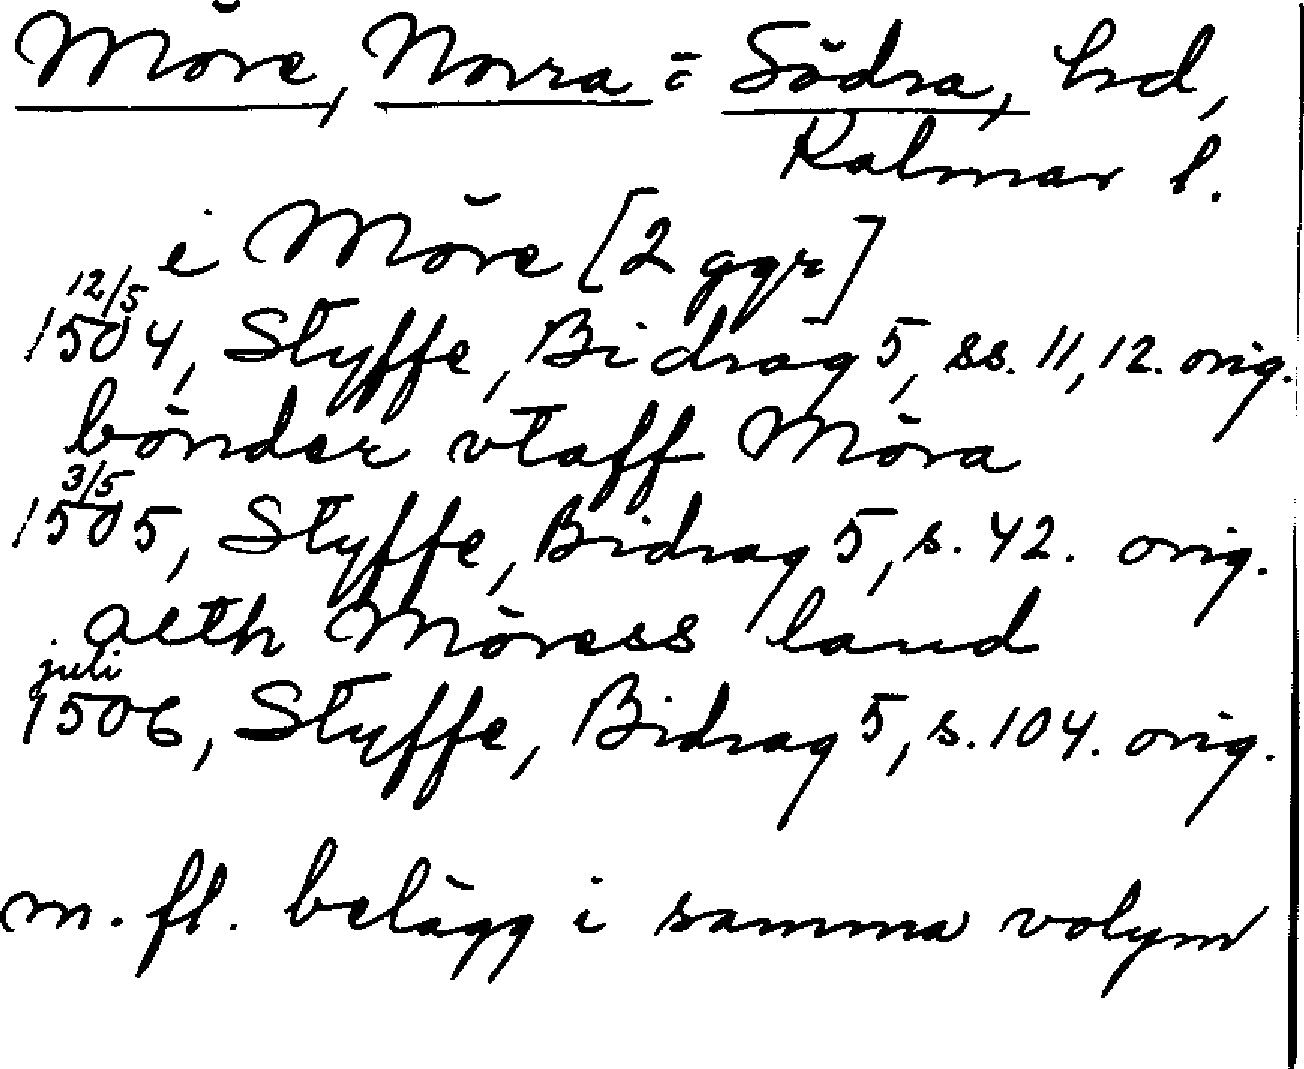 Möre, Norra o. Södra, hd,
Kalmar l.
i Möre [2 ggr]
12/5
1504, Styffe, Bidrag 5, ss. 11, 12. orig.
bönder vtaff Möra
3/5
1505, Styffe, Bidrag 5, s. 42. orig.
aeth Möress land
juli
1506, Styffe, Bidrag 5, s. 104. orig.
m. fl. belägg i samma volym